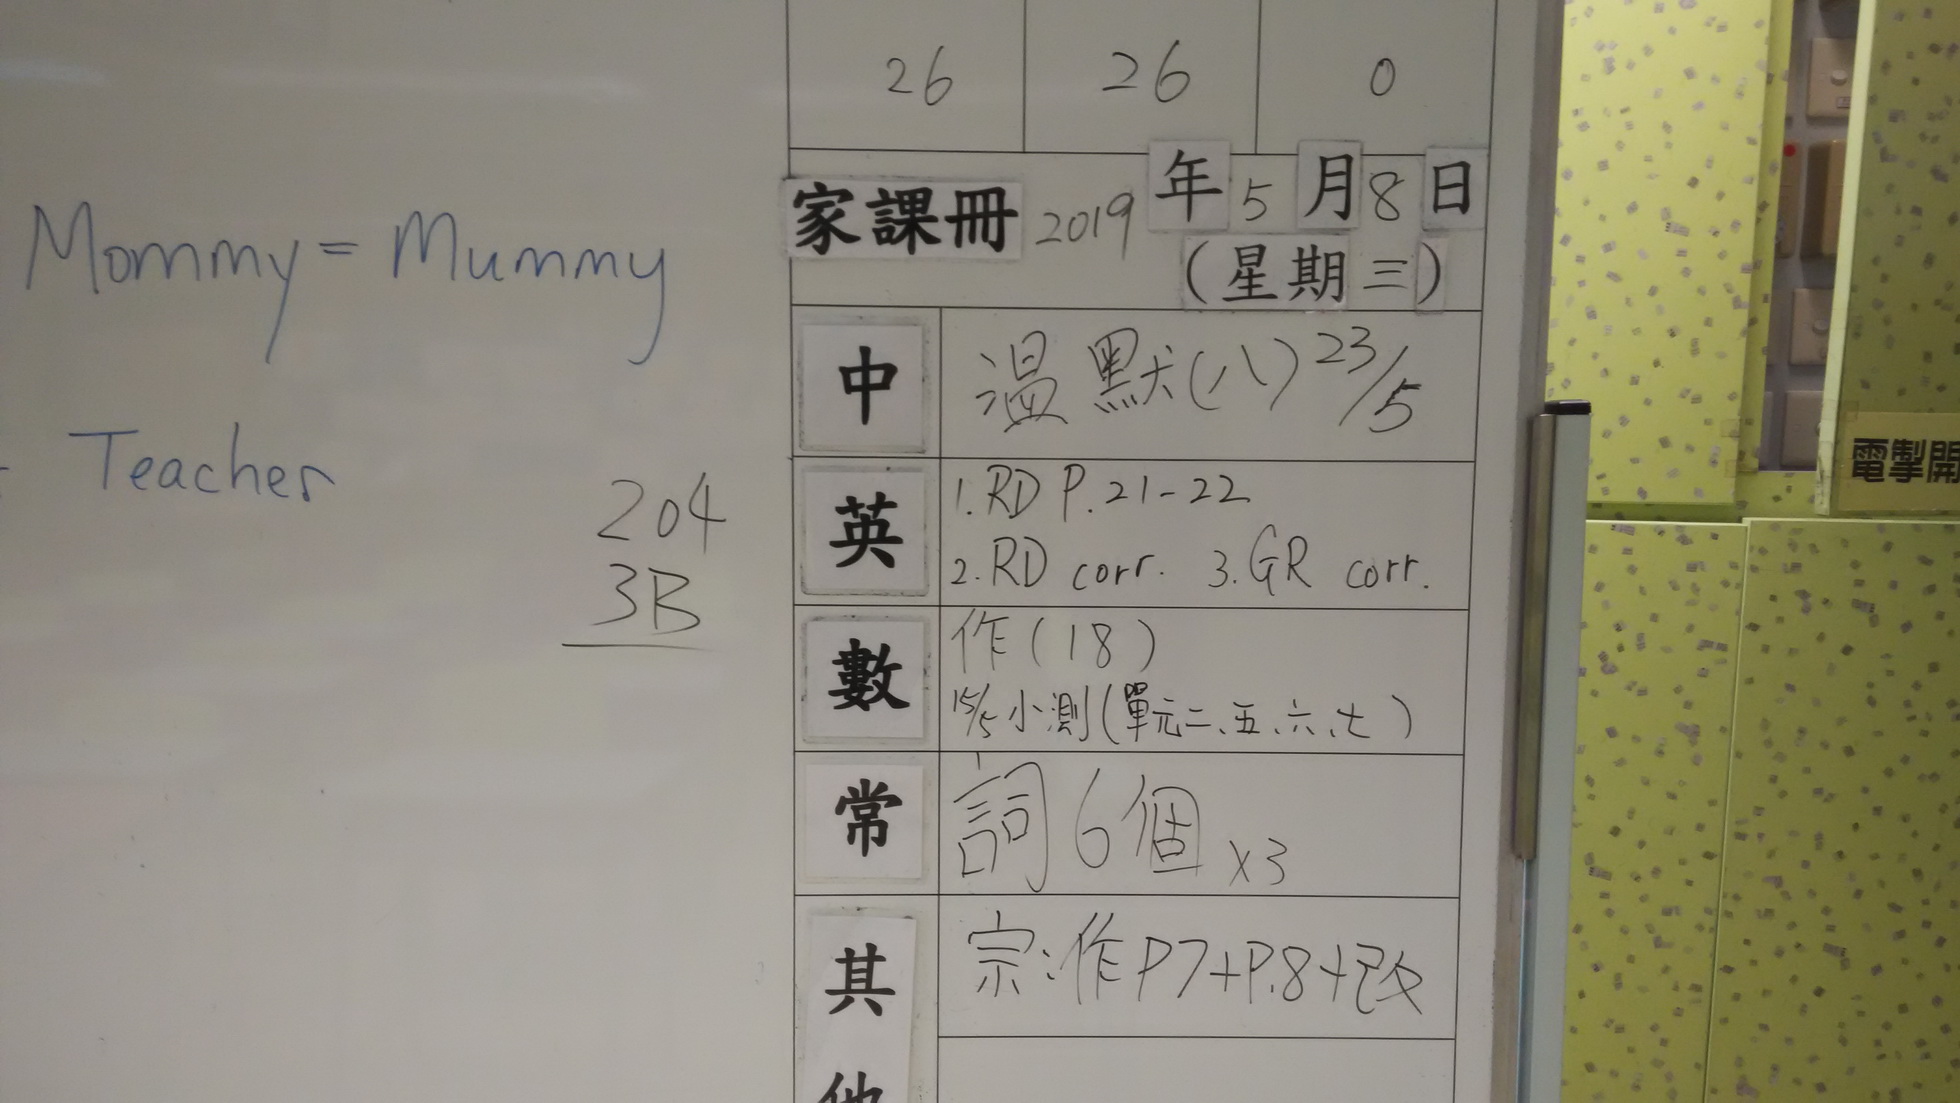 26 26 0
家課冊 2019年5月8日
(星期三)
Mommy = Mummy
Teacher
204
3B
中 溫默(八) 23/5
英 1. RD P.21-22
2. RD corr. 3. GR corr.
數 作(18)
15/5 小測(單元二、五、六、七)
常 詞6個 x3
其他 宗:作P7+P.8+改
電掣開